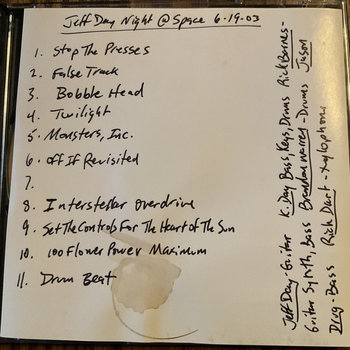 Jeff Day Night @ Space 6-19-03
1. Stop The Presses
2. False Track
3. Bobble Head
4. Twilight
5. Monsters, Inc.
6. Off If Revisited
7.
8. Interstellar Overdrive
9. Set The Controls For The Heart Of The Sun
10. 100 Flower Power Maximum
11. Drum Beat
Jeff Day - Guitar K. Day Bass, Keys, Drums Rick Barnes -
Guitar Synth, Bass Brandon Warren - Drums Jason
- Bass Rich Dart - xylophone